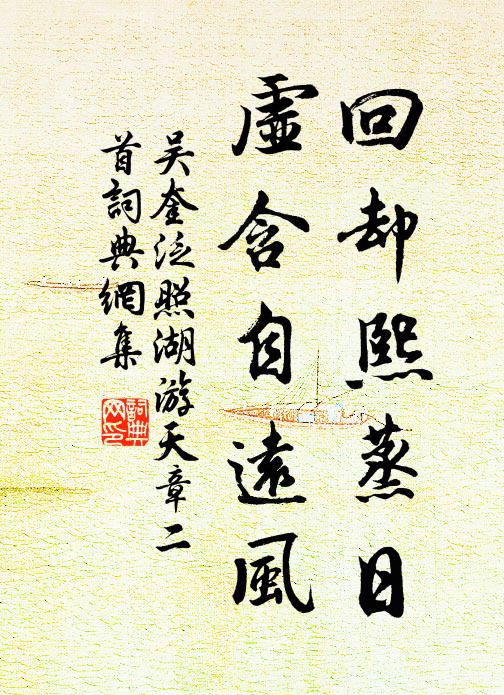 回却熙蒸日
虛含自遠風
吴奎泛照湖游天章二
首詞典網集
詞典
网印